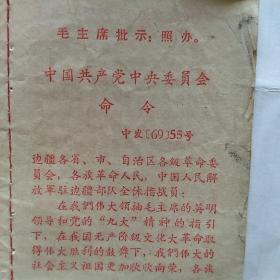 毛主席批示：照办。
中国共产党中央委员会
命令
中发〔69〕55号
边疆各省、市、自治区各级革命委
员会，各族革命人民，中国人民解
放军驻边疆部队全体指战员：
在我們伟大領袖毛主席的英明
領导和党的“九大”精神的指引
下，在我国无产阶级文化大革命取
得伟大胜利的鼓舞下，我們伟大的
社会主义祖国更加欣欣向荣，各族